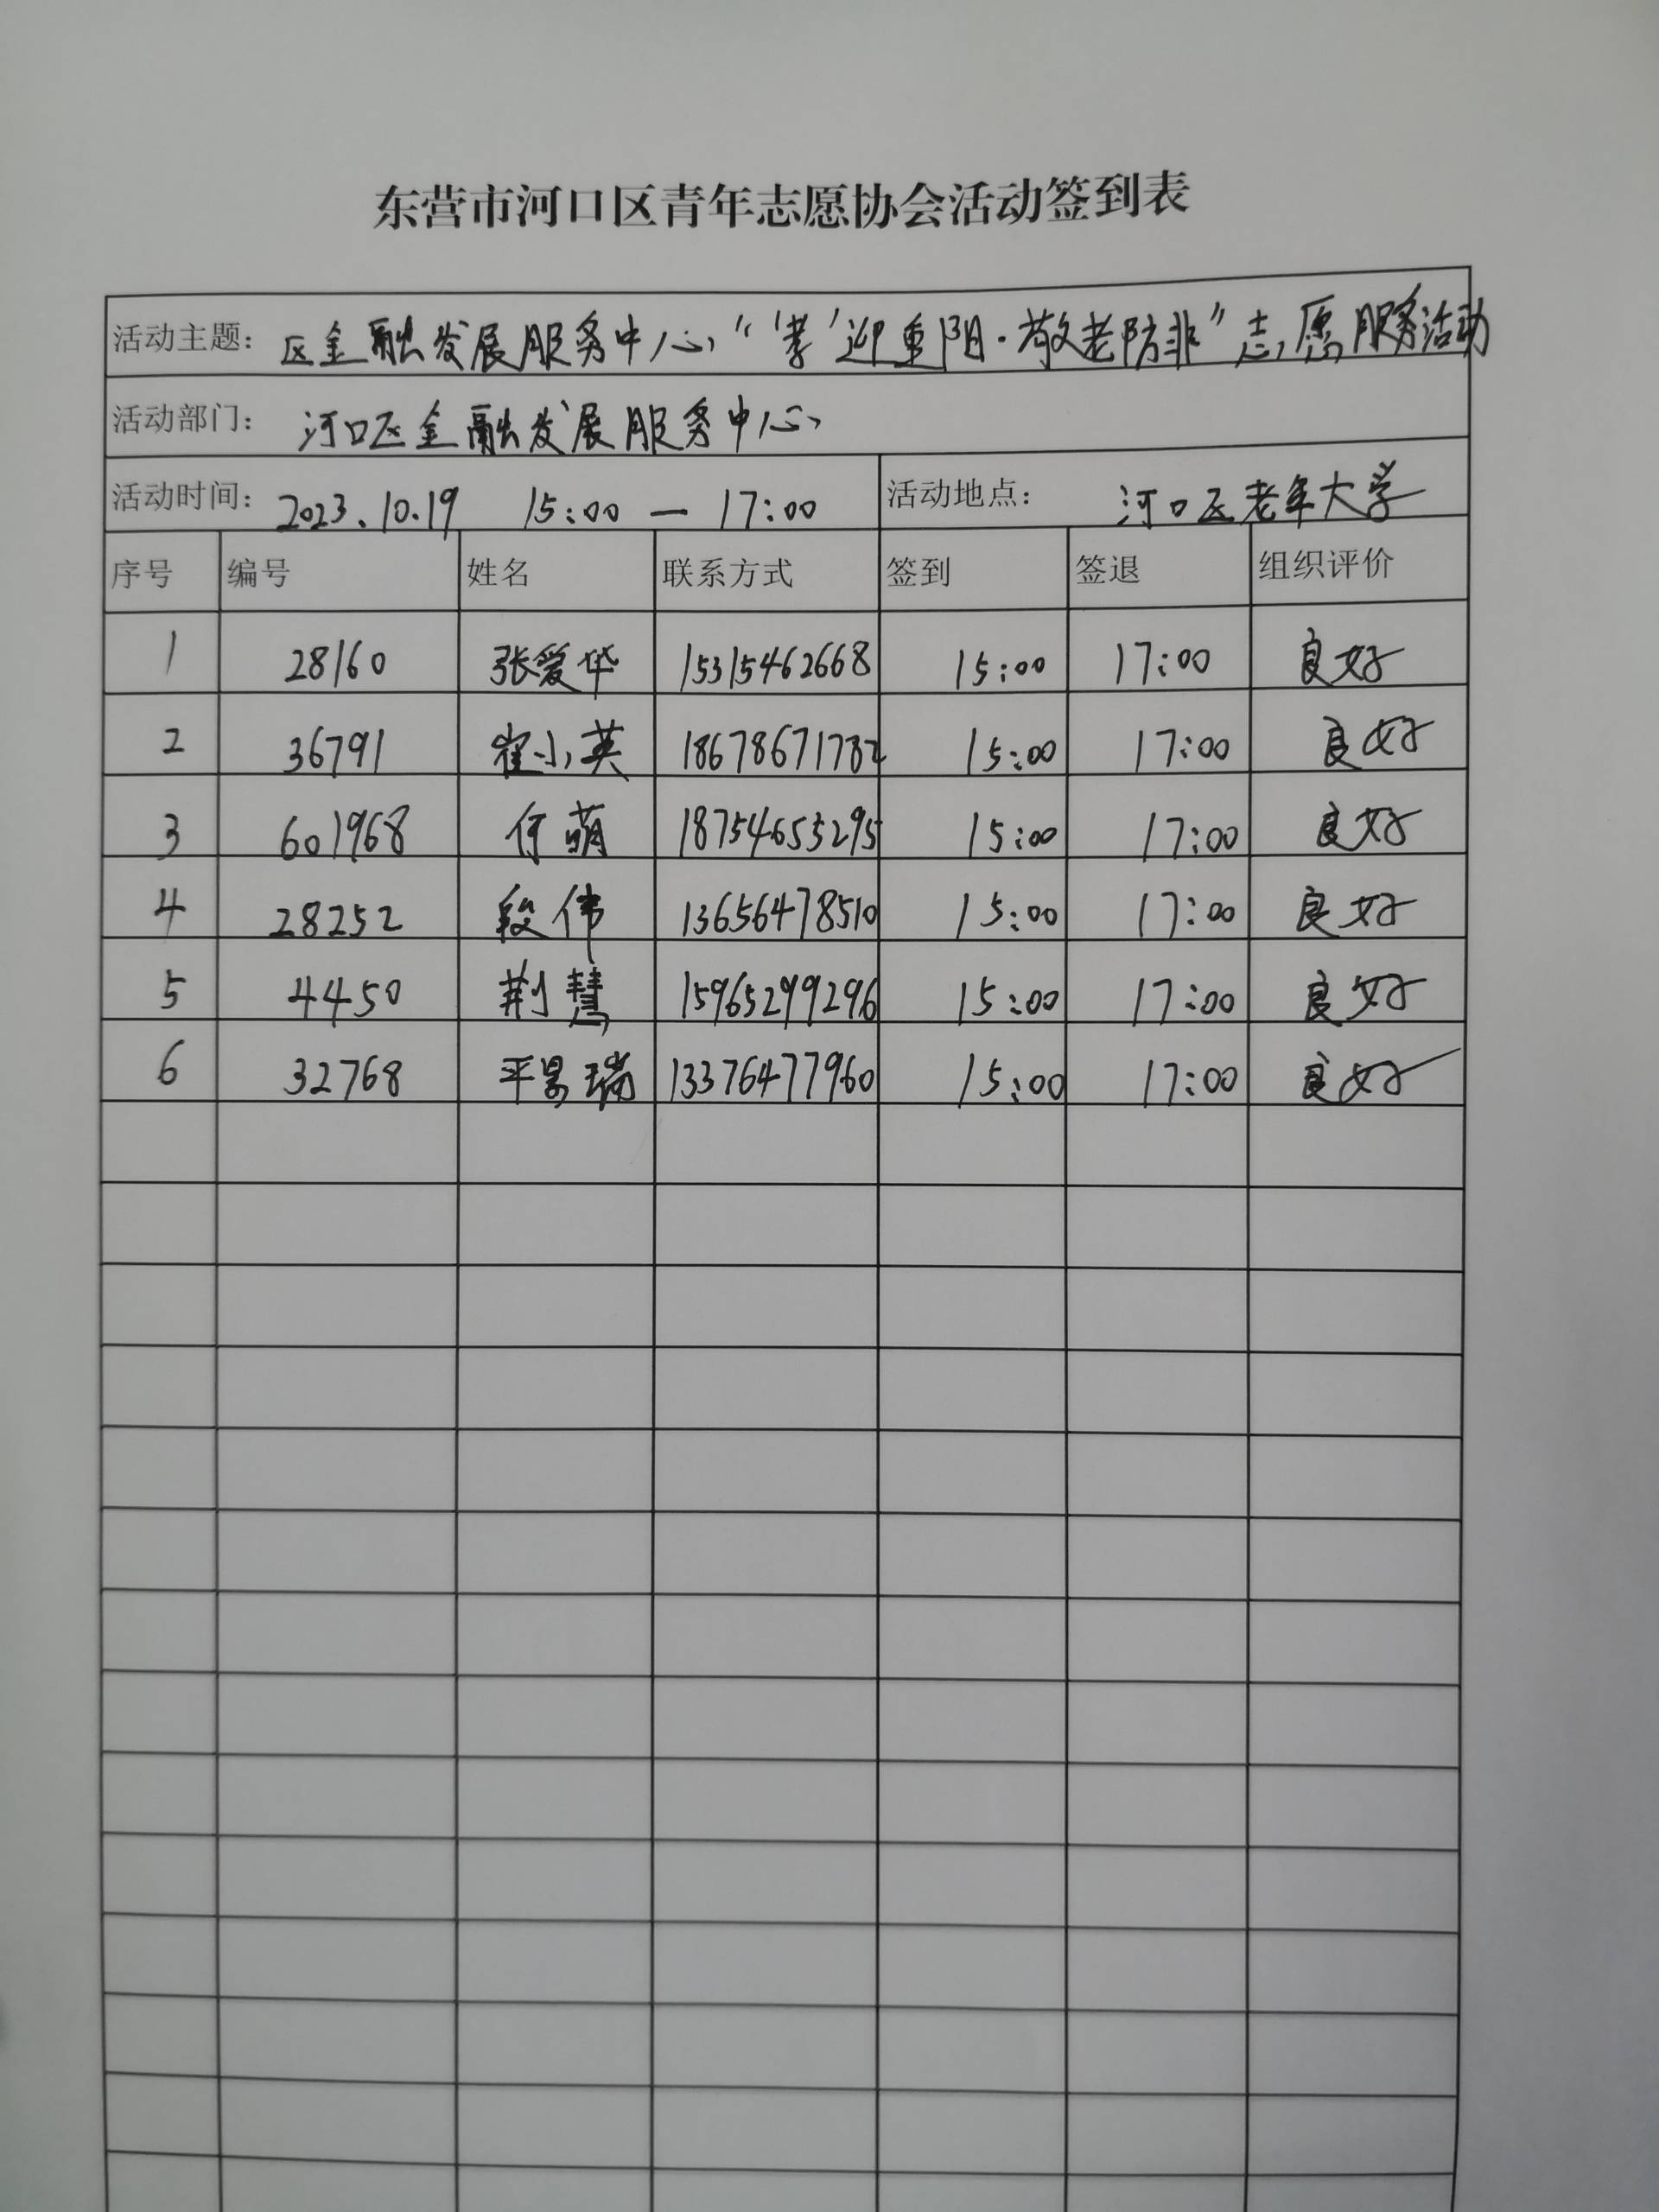 东营市河口区青年志愿协会活动签到表
活动主题： 区金融发展服务中心“‘孝’迎重阳·敬老防非”志愿服务活动
活动部门： 河口区金融发展服务中心
活动时间： 2023.10.19 15:00 — 17:00 活动地点： 河口区老年大学
序号 编号 姓名 联系方式 签到 签退 组织评价
1 28160 张爱华 15315462668 15:00 17:00 良好
2 36791 崔小英 18678671782 15:00 17:00 良好
3 601968 何萌 18754655295 15:00 17:00 良好
4 28252 段伟 13656478510 15:00 17:00 良好
5 4450 荆慧 15965299296 15:00 17:00 良好
6 32768 平昌瑞 13376477960 15:00 17:00 良好